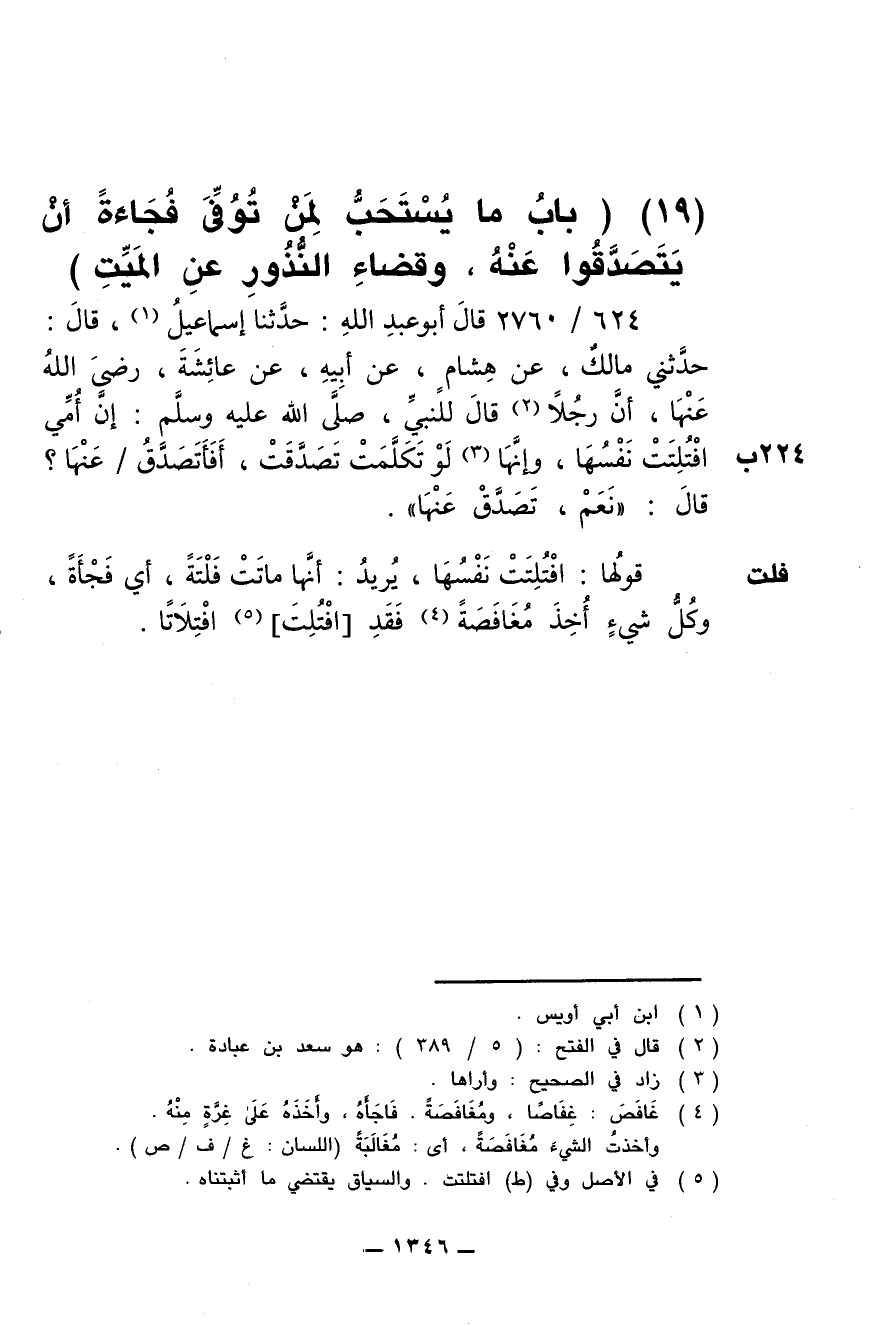 (١٩) ( بابُ ما يُسْتَحَبُّ لِمَنْ تُوُفِّيَ فُجَاءةً أنْ
يَتَصَدَّقُوا عَنْهُ ، وقضاءِ النُّذُورِ عنِ المَيِّتِ )
٦٢٤ / ٢٧٦٠ قالَ أبوعبدِ اللهِ : حدَّثنا إسماعيلُ (١) ، قالَ :
حدَّثني مالكٌ ، عن هِشامٍ ، عن أبيهِ ، عن عائِشَةَ ، رضيَ اللهُ
عَنْهَا ، أنَّ رجُلاً (٢) قالَ للنبيِّ ، صلَّى الله عليه وسلَّم : إنَّ أُمِّي
٢٢٤ب افْتُلِتَتْ نَفْسُهَا ، وإنَّهَا (٣) لَوْ تَكَلَّمَتْ تَصَدَّقَتْ ، أَفَأَتَصَدَّقُ / عَنْهَا ؟
قالَ : «نَعَمْ ، تَصَدَّقْ عَنْهَا» .
فلت قولُها : افْتُلِتَتْ نَفْسُهَا ، يُريدُ : أنَّها ماتَتْ فَلْتَةً ، أي فَجْأَةً ،
وكُلُّ شيءٍ أُخِذَ مُغَافَصَةً (٤) فَقَدِ [افْتُلِتَ] (٥) افْتِلَاتًا .
( ١ ) ابن أبي أويس .
( ٢ ) قال في الفتح : ( ٥ / ٣٨٩ ) : هو سعد بن عبادة .
( ٣ ) زاد في الصحيح : وأراها .
( ٤ ) غَافَصَ : غِفَاصًا ، ومُغَافَصَةً . فَاجَأَهُ ، وأَخَذَهُ عَلَىٰ غِرَّةٍ مِنْهُ .
وأخذتُ الشيءَ مُغَافَصَةً ، أى : مُغَالَبَةً (اللسان : غ / ف / ص ) .
( ٥ ) في الأصل وفي (ط) افتلتت . والسياق يقتضي ما أثبتناه .
ــ ١٣٤٦ ــ